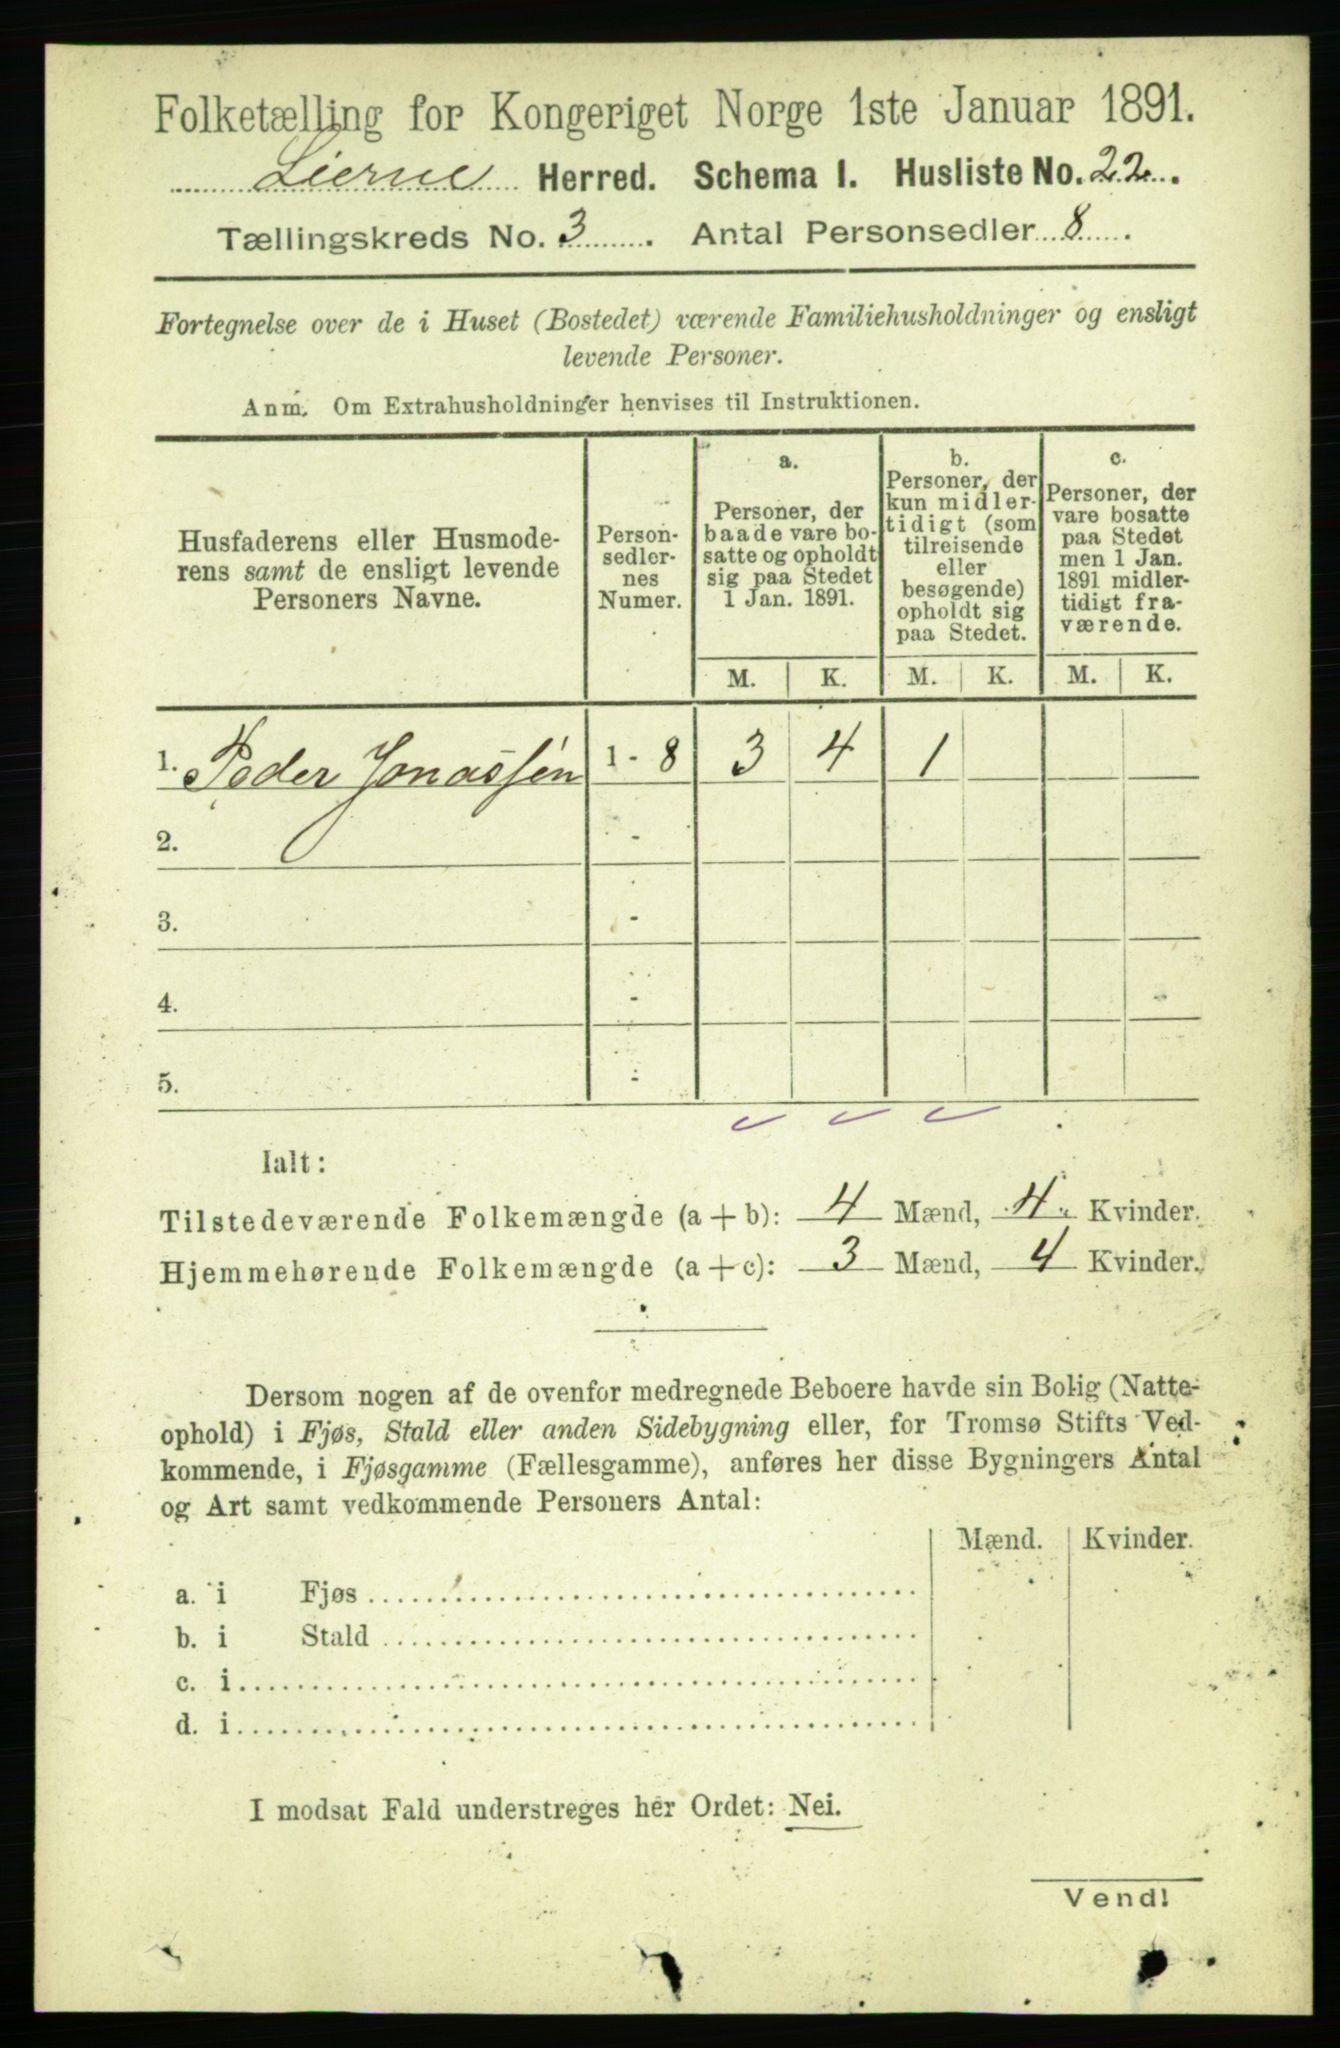 Folketælling for Kongeriget Norge 1ste Januar 1891.
Lierne Herred. Schema I. Husliste No. 22.
Tællingskreds No. 3. Antal Personsedler 8.
Fortegnelse over de i Huset (Bostedet) værende Familiehusholdninger og ensligt
levende Personer.
Anm. Om Extrahusholdninger henvises til Instruktionen.
Husfaderens eller Husmode-
rens samt de ensligt levende
Personers Navne.
Person-
sedler-
nes
Numer.
a.
Personer, der
baade vare bo-
satte og opholdt
sig paa Stedet
1 Jan. 1891.
b.
Personer, der
kun midler-
tidigt (som
tilreisende
eller
besøgende)
opholdt sig
paa Stedet.
c.
Personer, der
vare bosatte
paa Stedet
men 1 Jan.
1891 midler-
tidigt fra-
værende.
M. K. M. K. M. K.
1. Peder Jonassen 1 - 8 3 4 1
2. -
3. -
4. -
5. -
Ialt:
Tilstedeværende Folkemængde (a + b): 4 Mænd, 4 Kvinder.
Hjemmehørende Folkemængde (a + c): 3 Mænd, 4 Kvinder.
Dersom nogen af de ovenfor medregnede Beboere havde sin Bolig (Natte-
ophold) i Fjøs, Stald eller anden Sidebygning eller, for Tromsø Stifts Ved-
kommende, i Fjøsgamme (Fællesgamme), anføres her disse Bygningers Antal
og Art samt vedkommende Personers Antal:
Mænd. Kvinder.
a. i Fjøs
b. i Stald
c. i
d. i
I modsat Fald understreges her Ordet: Nei.
Vend!